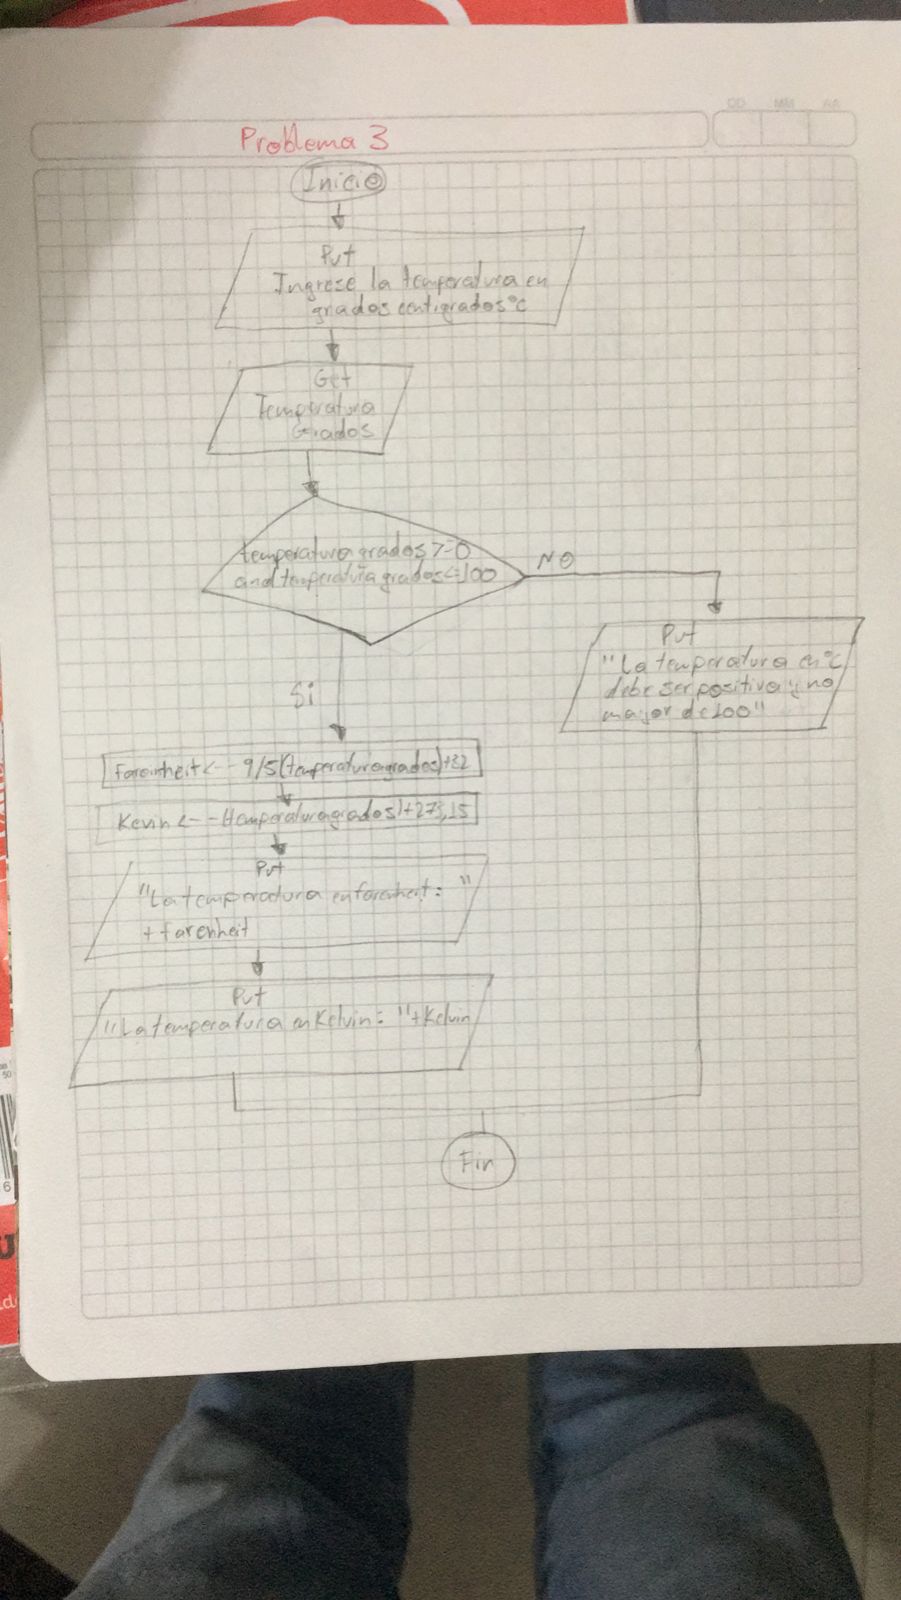 DD MM AA
Problema 3
Inicio
Put
Ingrese la temperatura en
grados centigrados °C
Get
Temperatura
Grados
temperatura grados >=0
and temperatura grados <=100
NO
Put
"La temperatura en °C
debe ser positiva y no
mayor de 100"
Si
Fareinheit <-- 9/5(temperaturagrados)+32
Kevin <-- (temperaturagrados)+273,15
Put
"La temperatura en farenheit: "
+ farenheit
Put
"La temperatura en Kelvin: "+Kelvin
Fin
50
6